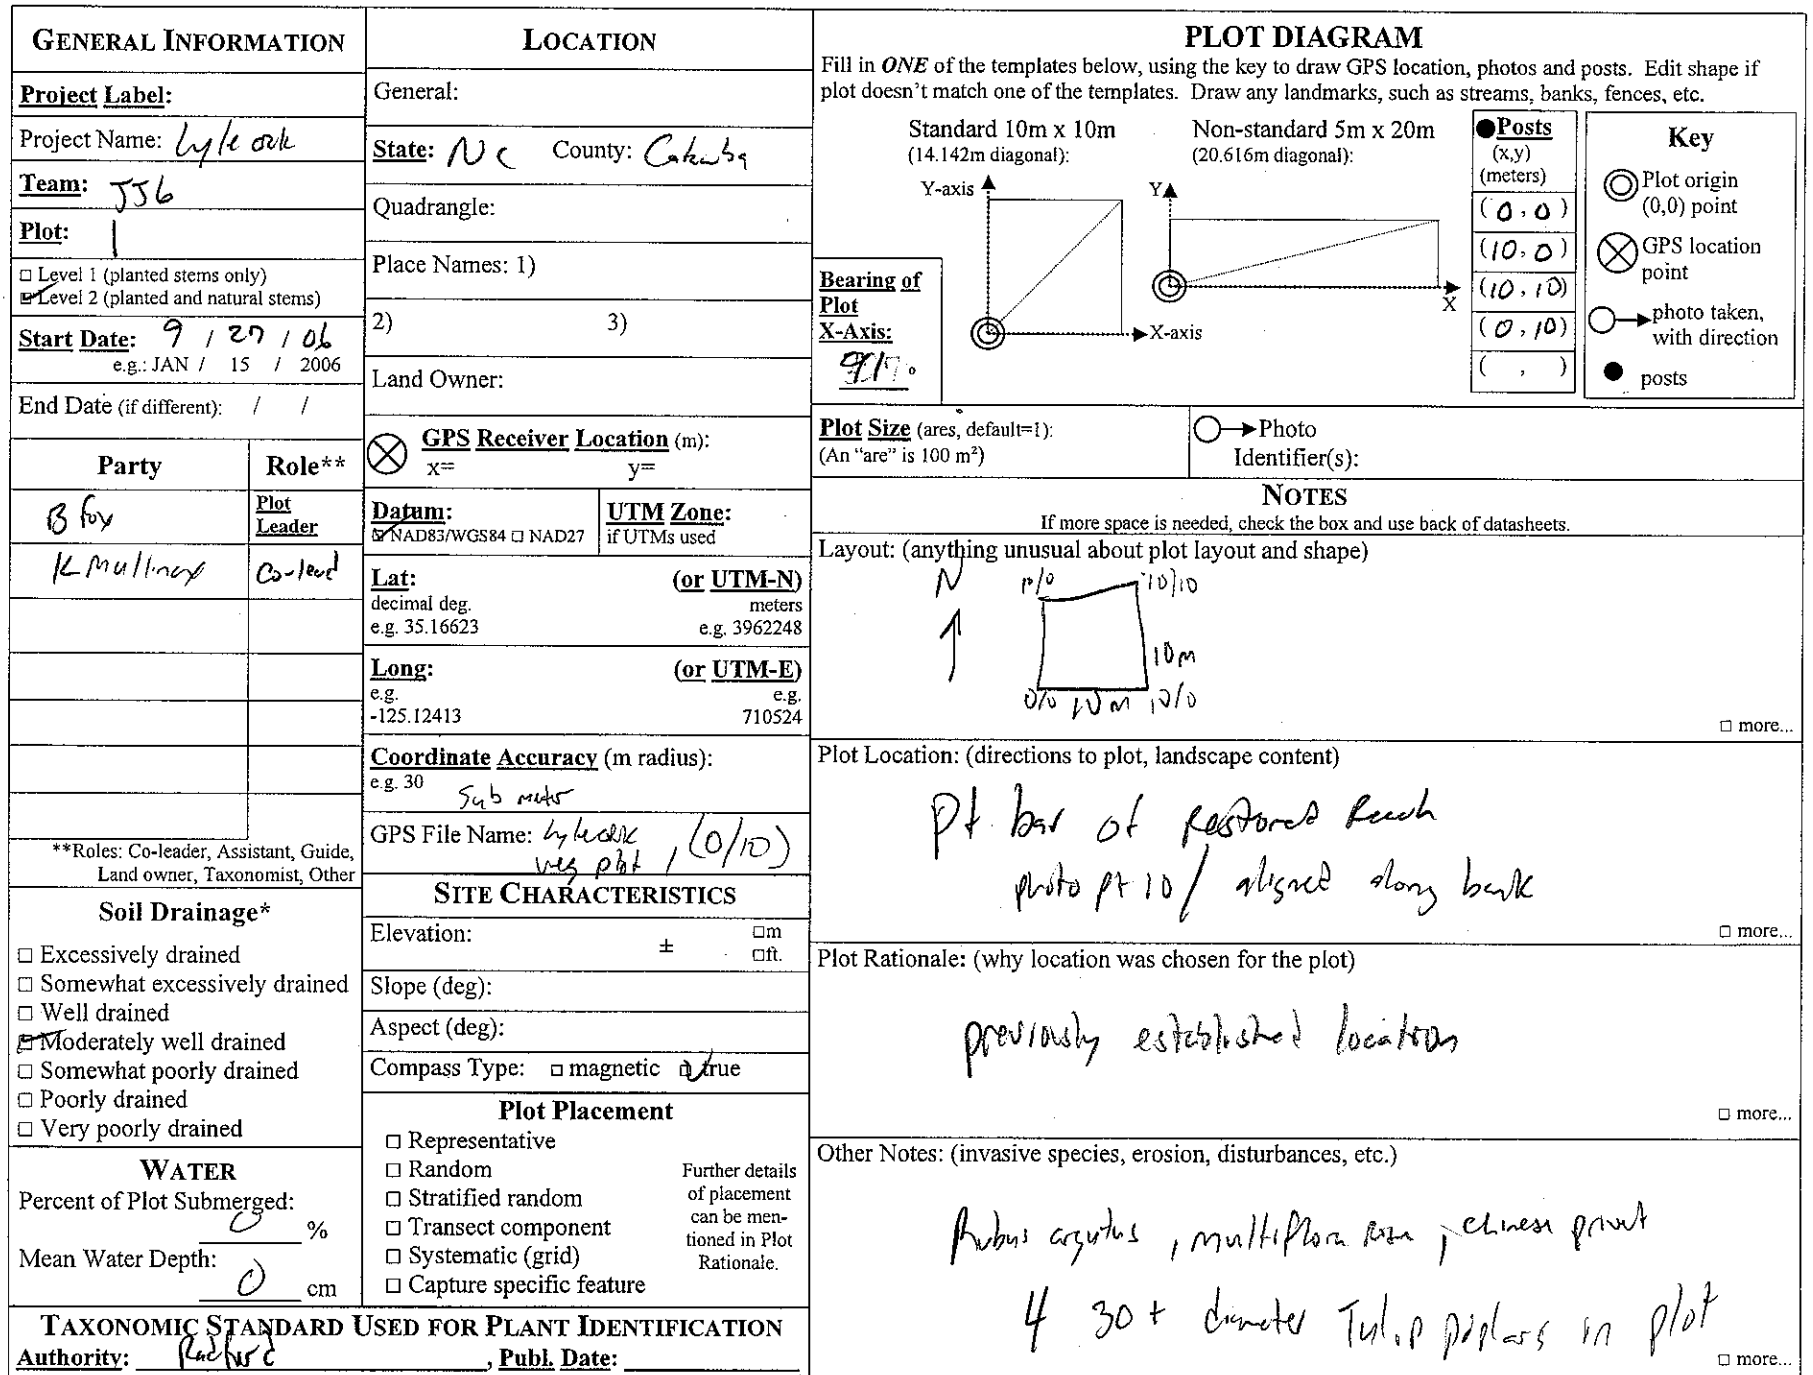 GENERAL INFORMATION
Project Label:
Project Name: Lyle
Team: JJG
Plot: 1
□ Level 1 (planted stems only)
☑ Level 2 (planted and natural stems)
Start Date: 9 / 27 / 06
e.g.: JAN / 15 / 2006
End Date (if different): / /
Party Role**
B Fox Plot Leader
K Mullinax Co-lead
**Roles: Co-leader, Assistant, Guide,
Land owner, Taxonomist, Other
Soil Drainage*
□ Excessively drained
□ Somewhat excessively drained
□ Well drained
☑ Moderately well drained
□ Somewhat poorly drained
□ Poorly drained
□ Very poorly drained
WATER
Percent of Plot Submerged:
0 %
Mean Water Depth:
0 cm
LOCATION
General:
State: NC County: Catawba
Quadrangle:
Place Names: 1)
2) 3)
Land Owner:
GPS Receiver Location (m):
x= y=
Datum:
☑ NAD83/WGS84 □ NAD27
UTM Zone:
if UTMs used
Lat: (or UTM-N)
decimal deg. meters
e.g. 35.16623 e.g. 3962248
Long: (or UTM-E)
e.g. e.g.
-125.12413 710524
Coordinate Accuracy (m radius):
e.g. 30 Sub meter
GPS File Name:
veg plot, (0/10)
SITE CHARACTERISTICS
Elevation: ± □m
□ft.
Slope (deg):
Aspect (deg):
Compass Type: □ magnetic ☑ true
Plot Placement
□ Representative
□ Random
□ Stratified random
□ Transect component
□ Systematic (grid)
□ Capture specific feature
Further details
of placement
can be men-
tioned in Plot
Rationale.
TAXONOMIC STANDARD USED FOR PLANT IDENTIFICATION
Authority: Radford, Publ. Date:
PLOT DIAGRAM
Fill in ONE of the templates below, using the key to draw GPS location, photos and posts. Edit shape if
plot doesn't match one of the templates. Draw any landmarks, such as streams, banks, fences, etc.
Standard 10m x 10m
(14.142m diagonal):
Y-axis
X-axis
Non-standard 5m x 20m
(20.616m diagonal):
Y
X
Bearing of
Plot
X-Axis:
°
●Posts
(x,y)
(meters)
(0, 0)
(10, 0)
(10, 10)
(0, 10)
( , )
Key
Plot origin
(0,0) point
GPS location
point
photo taken,
with direction
posts
Plot Size (ares, default=1):
(An "are" is 100 m²)
Photo
Identifier(s):
NOTES
If more space is needed, check the box and use back of datasheets.
Layout: (anything unusual about plot layout and shape)
N 10/10
10m
0/0 10m 10/0
□ more...
Plot Location: (directions to plot, landscape content)
Pt. bar of Restored Reach
photo pt 10 / aligned along bank
□ more...
Plot Rationale: (why location was chosen for the plot)
previously established location
□ more...
Other Notes: (invasive species, erosion, disturbances, etc.)
Rubus argutus, multiflora rose, chinese privet
4 30+ diameter Tulip poplars in plot
□ more...